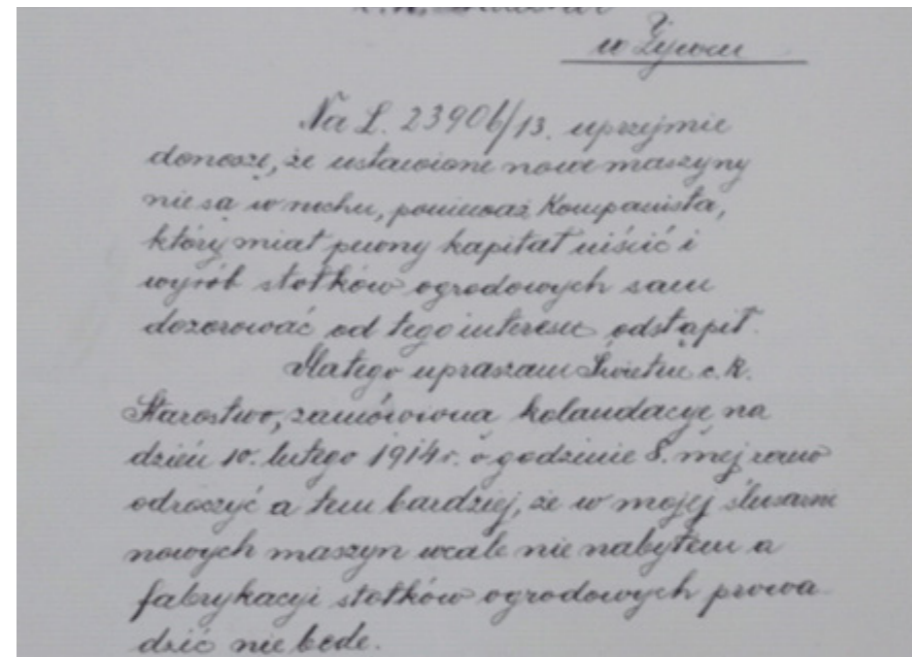 w Żywcu
Na L. 23906/13. uprzejmie
donoszę, że ustawione nowe maszyny
nie są w ruchu, ponieważ Kompanista,
który miał pewny kapitał uiścić i
wyrób stołków ogrodowych sam
dozorować od tego interesu odstąpił.
Dlatego upraszam Świetne c. k.
Starostwo, zamówiona kolaudacyę na
dzień 10. lutego 1914 r. o godzinie 8. mej rano
odroczyć a tem bardziej, że w mojej ślusarni
nowych maszyn wcale nie nabyłem a
fabrykacyi stołków ogrodowych prowa
dzić nie będe.